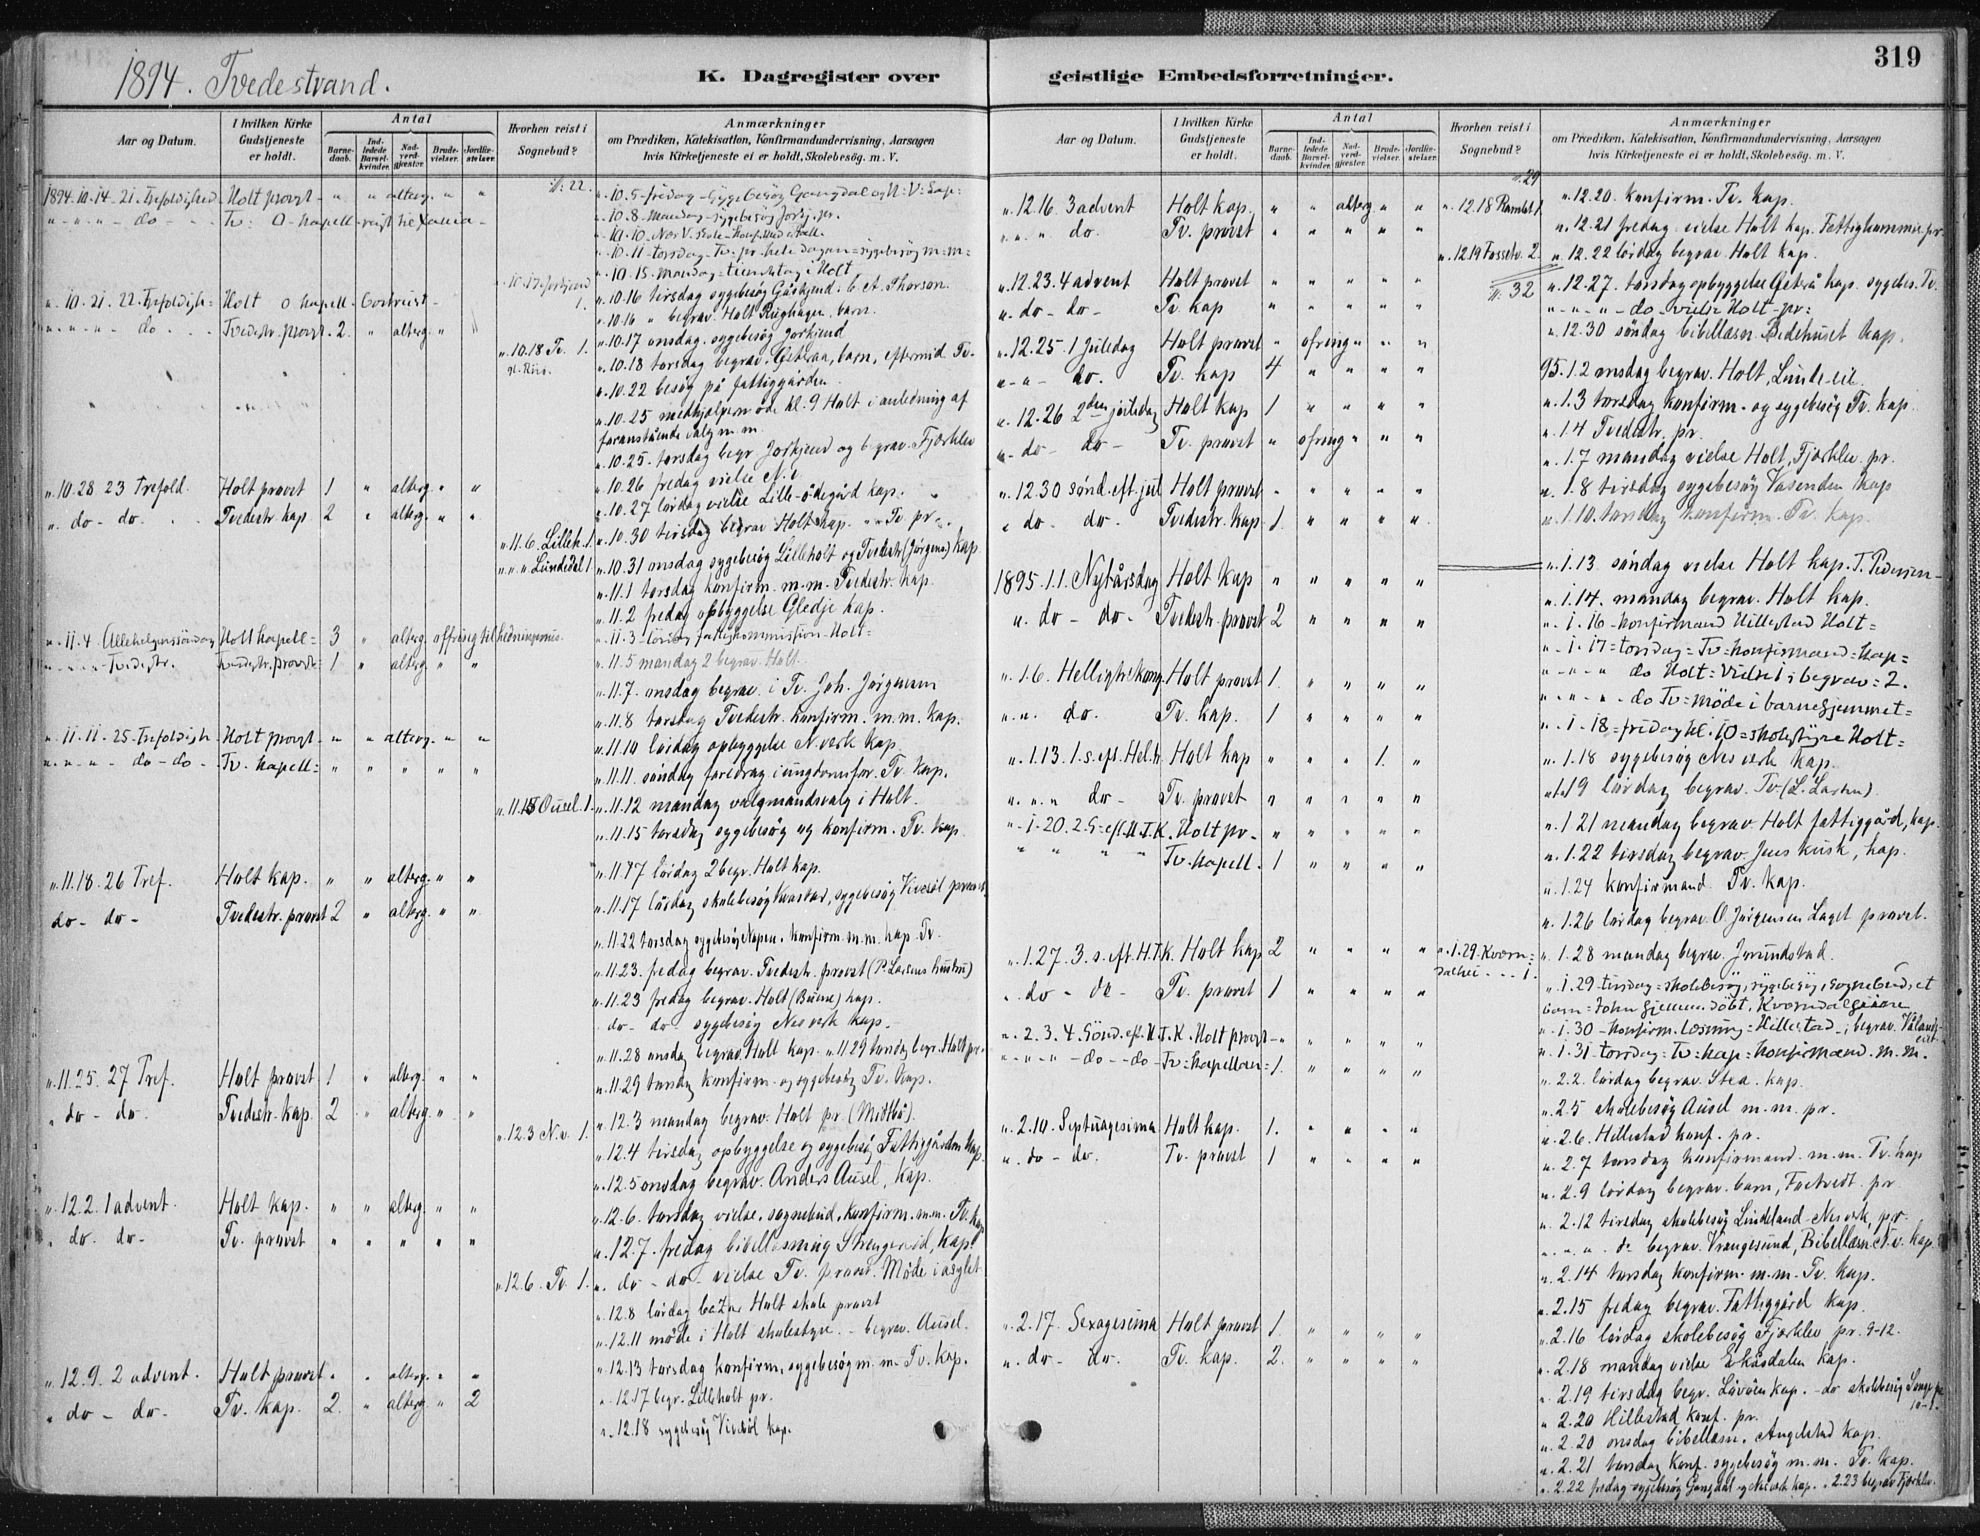 1894. Tvedestrand.
K. Dagregister over
Aar og Datum.
I hvilken Kirke Gudstjeneste er holdt.
Antal
Barnedaab.
Indledede Barselkvinder.
Nadverdgjæster.
Brudevielser.
Jordfæstelser.
Hvorhen reist i Sognebud?
Anmærkninger
om Prædiken, Katekisation, Konfirmandundervisning, Aarsagen
hvis Kirketjeneste ei er holdt, Skolebesög. m. V.
1894. 10. 14. 21. Trefoldighed Holt provst " " alterg. " "
" " " do Tv: O Kapell reist
" 10. 21. 22. Trefoldigh. Holt O Kapell
" " " do Tvedestr. provst 2. " alterg. " "
" 10. 28. 23 Trefold. Holt provst 1 " alterg. " "
" do - do. Tvedestr. kap 2 " alterg. " "
" 11. 4 Allehelgenssöndag Holt kapell 3 " alterg. offring til hedningemis.
" " " Tvedestr. provst 1 " alterg. " "
" 11. 11. 25 Trefoldigh. Holt provst " " alterg. " "
" " " do - do - Tv. kapell " " " " "
" 11. 18. 26 Tref. Holt kap. " " alterg. " "
do - do - Tvedestr. provst 2 " alterg. " "
" 11. 25. 27 Tref. Holt provst 1 " alterg. " "
" do - do. Tvedestr. kap. 2 " alterg. " "
" 12. 2. 1 advent. Holt kap. " " alterg " "
" do. do - Tv. provst " " " " "
" 12. 9. 2 advent. Holt provst " " alterg. " "
" do - do. Tv. kap. 2. " alterg " 2
" 10.18 Tv. 1.
" 11. 6. Lilleh. 1.
" " " Lundedal 1
" 11.15 Ousel. 1.
" 12.3 N.v. 1.
" 12.6. Tv. 1.
" 10. 8. mandag sygebesög
" 10. 15. mandag tiendetag i Holt
" 10. 16 tirsdag sygebesög
" 10. 16 " begrav. Holt Rughagen, barn.
" 10. 17 onsdag. sygebesög Jorkjend
" 10. 18 torsdag begrav. Geteraa, barn, eftermid. Tv.
" 10. 22 besög på fattiggården.
" 10. 25 medhjelpermöde kl. 9 Holt i anledning af
foranstående valg m. m.
" 10. 25. torsdag begr. Jorkjend og begrav. Fjærklev
" 10. 26 fredag vielse N.v
" 10. 27 lördag vielse Lille-ödegård kap.
" 10. 30 tirsdag begrav Holt kap. " " Tv pr.
" 10. 31 onsdag sygebesög Lilleholt og Tvedestr (Jörgens) kap.
" 11. 1 torsdag konfirm. m. m. Tvedestr. kap.
" 11. 2 fredag opbyggelse Gledje kap.
" 11. 3 lördag fattigkommission Holt
" 11. 5 mandag 2 begrav. Holt.
" 11. 7. onsdag begrav. i Tv. Joh. Jörgensen
" 11. 8 torsdag Tvedestr. konfirm. m. m. kap.
" 11. 10 lördag opbyggelse N.verk kap.
" 11. 11. söndag foredrag i ungdomsfor. Tv. kap.
" 11. 12 mandag valgmandsvalg i Holt.
" 11. 15 torsdag sygebesög og konfirm. Tv. kap.
" 11. 17 lördag 2 begr. Holt kap.
" 11. 17 lördag skolebesög Kvastad, sygebesög Vivesöl provst
" 11. 22 torsdag sygebesög Napen. konfirm. m. m. kap. Tv.
" 11. 23. fredag begrav. Tvedestr. provst (P. Larsens hustru)
" 11. 23 fredag begrav. Holt kap.
do - do sygebesög Nesverk kap.
" 11. 28 onsdag begrav. Holt kap. " 11 29 torsdag begr. Holt pr.
" 11. 29 torsdag konfirm. og sygebesög Tv. kap.
" 12. 3 mandag begrav. Holt pr. (Midtbö).
" 12. 4 tirsdag opbyggelse og sygebesög Fattiggården kap.
" 12. 5 onsdag begrav. Anders Ausel, kap.
" 12. 6. torsdag vielse, sognebud, konfirm. m.m. Tv. kap
" 12. 7. fredag bibellæsning Strengereid, kap.
" do - do - vielse Tv. provst. Möde i asylet
" 12. 8 lördag bazar Holt skole provst
" 12. 11 möde i Holt skolestyre. - begrav. Ausel.
" 12. 13 torsdag konfirm. sygebesög m. m. Tv. kap.
" 12. 17 begr. Lilleholt pr.
" 12. 18 sygebesög Vivesöl kap.
geistlige Embedsforretninger.
319
Aar og Datum.
I hvilken Kirke Gudstjeneste er holdt.
Antal
Barnedaab.
Indledede Barselkvinder.
Nadverdgjæster.
Brudevielser.
Jordfæstelser.
Hvorhen reist i Sognebud?
Anmærkninger
om Prædiken, Katekisation, Konfirmandundervisning, Aarsagen
hvis Kirketjeneste ei er holdt, Skolebesög. m. V.
" 12. 16. 3 advent Holt kap. " " alterg " "
" " " do. Tv. provst " " " " "
" 12. 23. 4 advent Holt provst " " " " "
" do - do - Tv. kap " " " " "
" 12. 25. 1 Juledag Holt provst " ofring " " "
" - " - do. Tv. kap 4 " " " "
" 12. 26 2den juledag Holt kap 1 " " " "
" do - do - Tv. provst " ofring " " "
" 12. 30 sönd. eft. jul Holt provst " " " " "
" do - do. Tvedestr. kap. 1 " " " "
1895. 1. 1. Nytårsdag Holt kap " " " " "
" do - do - Tvedestr. provst 2 " " " "
" 1. 6. Helligh3kong. Holt provst 1. " " " "
" " do. Tv. kap. 1 " " " "
" 1. 13. 1. s. eft. Hel. tr. Holt kap " " " 1. "
" " " do - Tv. provst " " " " "
" 1. 20. 2. S. eft. H. T. K. Holt pr. " " " " "
" " " " Tv. kapell. 1 " " " "
" 1. 27. 3. s. eft. H. T. K. Holt kap 2 " " " "
" do - do - Tv. provst 1 " " " "
" 2. 3. 4. Sönd. eft. H. T. K. Holt provst " " " " "
" " " " do - do Tv. kapellan 1. " " " "
" 2. 10. Septuagesima Holt kap. 1. " " " "
" do - do. Tv. provst 1 " " " "
" 2. 17. Sexagesima Holt provst 1. " " " "
" do - do. Tv. kap. 2. " " " "
29
" 12. 18 Ramlet 1.
" 12 19 Fosselv. 2.
32
" 1. 29. Kværn
" 12. 20. konfirm. Tv. kap.
" 12. 21 fredag vielse Holt kap. Fattigkommis pr
" 12. 22 lördag begrav. Holt kap.
" 12. 27. torsdag opbyggelse Geterå kap. sygebes. Tv.
" " " " do vielse Holt pr:
" 12. 30 söndag bibellæsn. Bedehuset kap.
95. 1. 2 onsdag begrav. Holt, Lunde-eie.
" 1. 3 torsdag konfirm. og sygebesög Tv. kap.
" 1. 4 Tvedestr. pr.
" 1. 7 mandag vielse Holt, Fjærklev. pr.
" 1. 8 tirsdag sygebesög Vasenden kap
" 1. 10. torsdag konfirm. Tv. kap.
" 1. 13 söndag vielse Holt kap. T. Pedersen
" 1. 14. mandag begrav. Holt kap.
" 1. 16 konfirmand Hillestad Holt
" 1. 17 torsdag Tv konfirmand kap
" " " do Holt vielse 1 begrav 2.
" " " do Tv möde i barnehjemmet
" 1. 18 fredag kl. 10 skolestyre Holt
" 1. 18 sygebesög Nes verk kap.
" 1. 19 lördag begrav. Tv (L. Larsen).
" 1. 21 mandag begrav. Holt fattiggård, kap.
" 1. 22 tirsdag begrav. Jens Kusk, kap.
" 1. 24 konfirmand. Tv. kap.
" 1. 26 lördag begrav. O. Jörgensen Laget provst.
" 1. 28 mandag begrav. Jorundstad.
" 1. 29 tirsdag skolebesög, sygebesög, sognebud, et
" 1. 30 konfirm. læsning Hillestad, begrav.
" 1. 31 torsdag Tv kap konfirmand. m. m.
" 2. 2. lördag begrav. Stea. kap.
" 2. 5 skolebesög Ausel m. m. pr.
" 2. 6. Hillestad konf. pr.
" 2. 7 torsdag konfirmand. m. m. Tv. kap
" 2. 9 lördag begrav. barn, Fostvedt pr.
" 2. 12 tirsdag skolebesög Lindeland Nesverk, pr.
" " " do begrav. Vrangesund, Bibellæsn. N. v. kap.
" 2. 14 torsdag konfirm. m. m. Tv. kap.
" 2. 15 fredag begrav. Fattiggård kap.
" 2. 16 lördag skolebesög Fjærklev pr. 9-12.
" 2. 18 mandag vielse Ekåsdalen kap.
" 2. 19 tirsdag begr. Lövåen kap. - do skolebesög Songe pr
" 2. 20 Hillestad konf. pr.
" 2. 20 onsdag bibellæsn. Angelstad kap.
" 2. 21 torsdag konf. sygebesög m. m. Tv. kap.
" 2. 22 fredag sygebesög Gangdal og Nesverk kap. " 2.23 begrav Fjærklev.